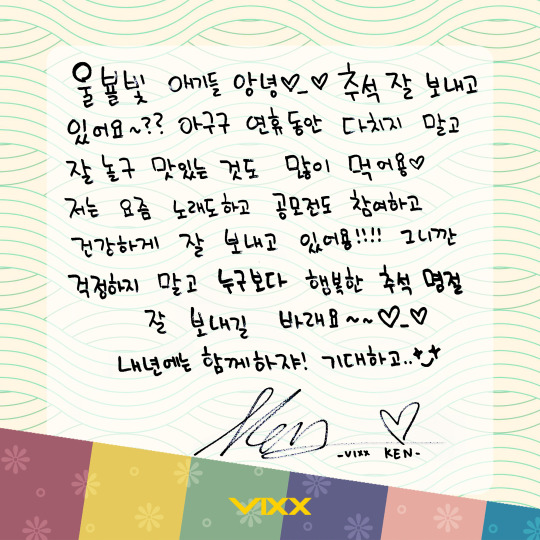 울 별빛 애기들 안녕♡_♡ 추석 잘 보내고
있어요~?? 아구구 연휴동안 다치지 말고
잘 놀구 맛있는 것도 많이 먹어용♡
저는 요즘 노래도하고 공모전도 참여하고
건강하게 잘 보내고 있어용!!!! 그니깐
걱정하지 말고 누구보다 행복한 추석 명절
잘 보내길 바래요~~♡_♡
내년에는 함께하쟈! 기대하고..
Ken ♡
-VIXX KEN-
VIXX